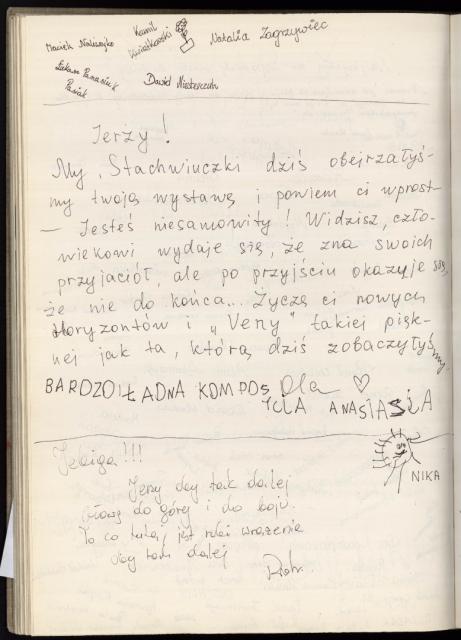 Kamil
Maciek
Kwiatkowski
Natalia Zagrzywiec
Łukasz Panasiuk
Dawid
Pasiak
Jerzy!
My, Stachwiuczki dziś obejrzałyś-
my twoją wystawę i powiem ci wprost
— Jesteś niesamowity! Widzisz, czło-
wiekowi wydaje się, że zna swoich
przyjaciół, ale po przyjściu okazuje się,
że nie do końca... Życzę ci nowych
Horyzontów i „Veny" takiej pięk-
nej jak ta, którą dziś zobaczyłyśmy.
Ola ♡
BARDZO ŁADNA KOMPOS
ICIA ANASIASIA
NIKA
!!!
Jerzy day tak dalej
Głowę do góry i do boju.
To co tutaj jest robi wrażenie
day tam dalej
Piotr.